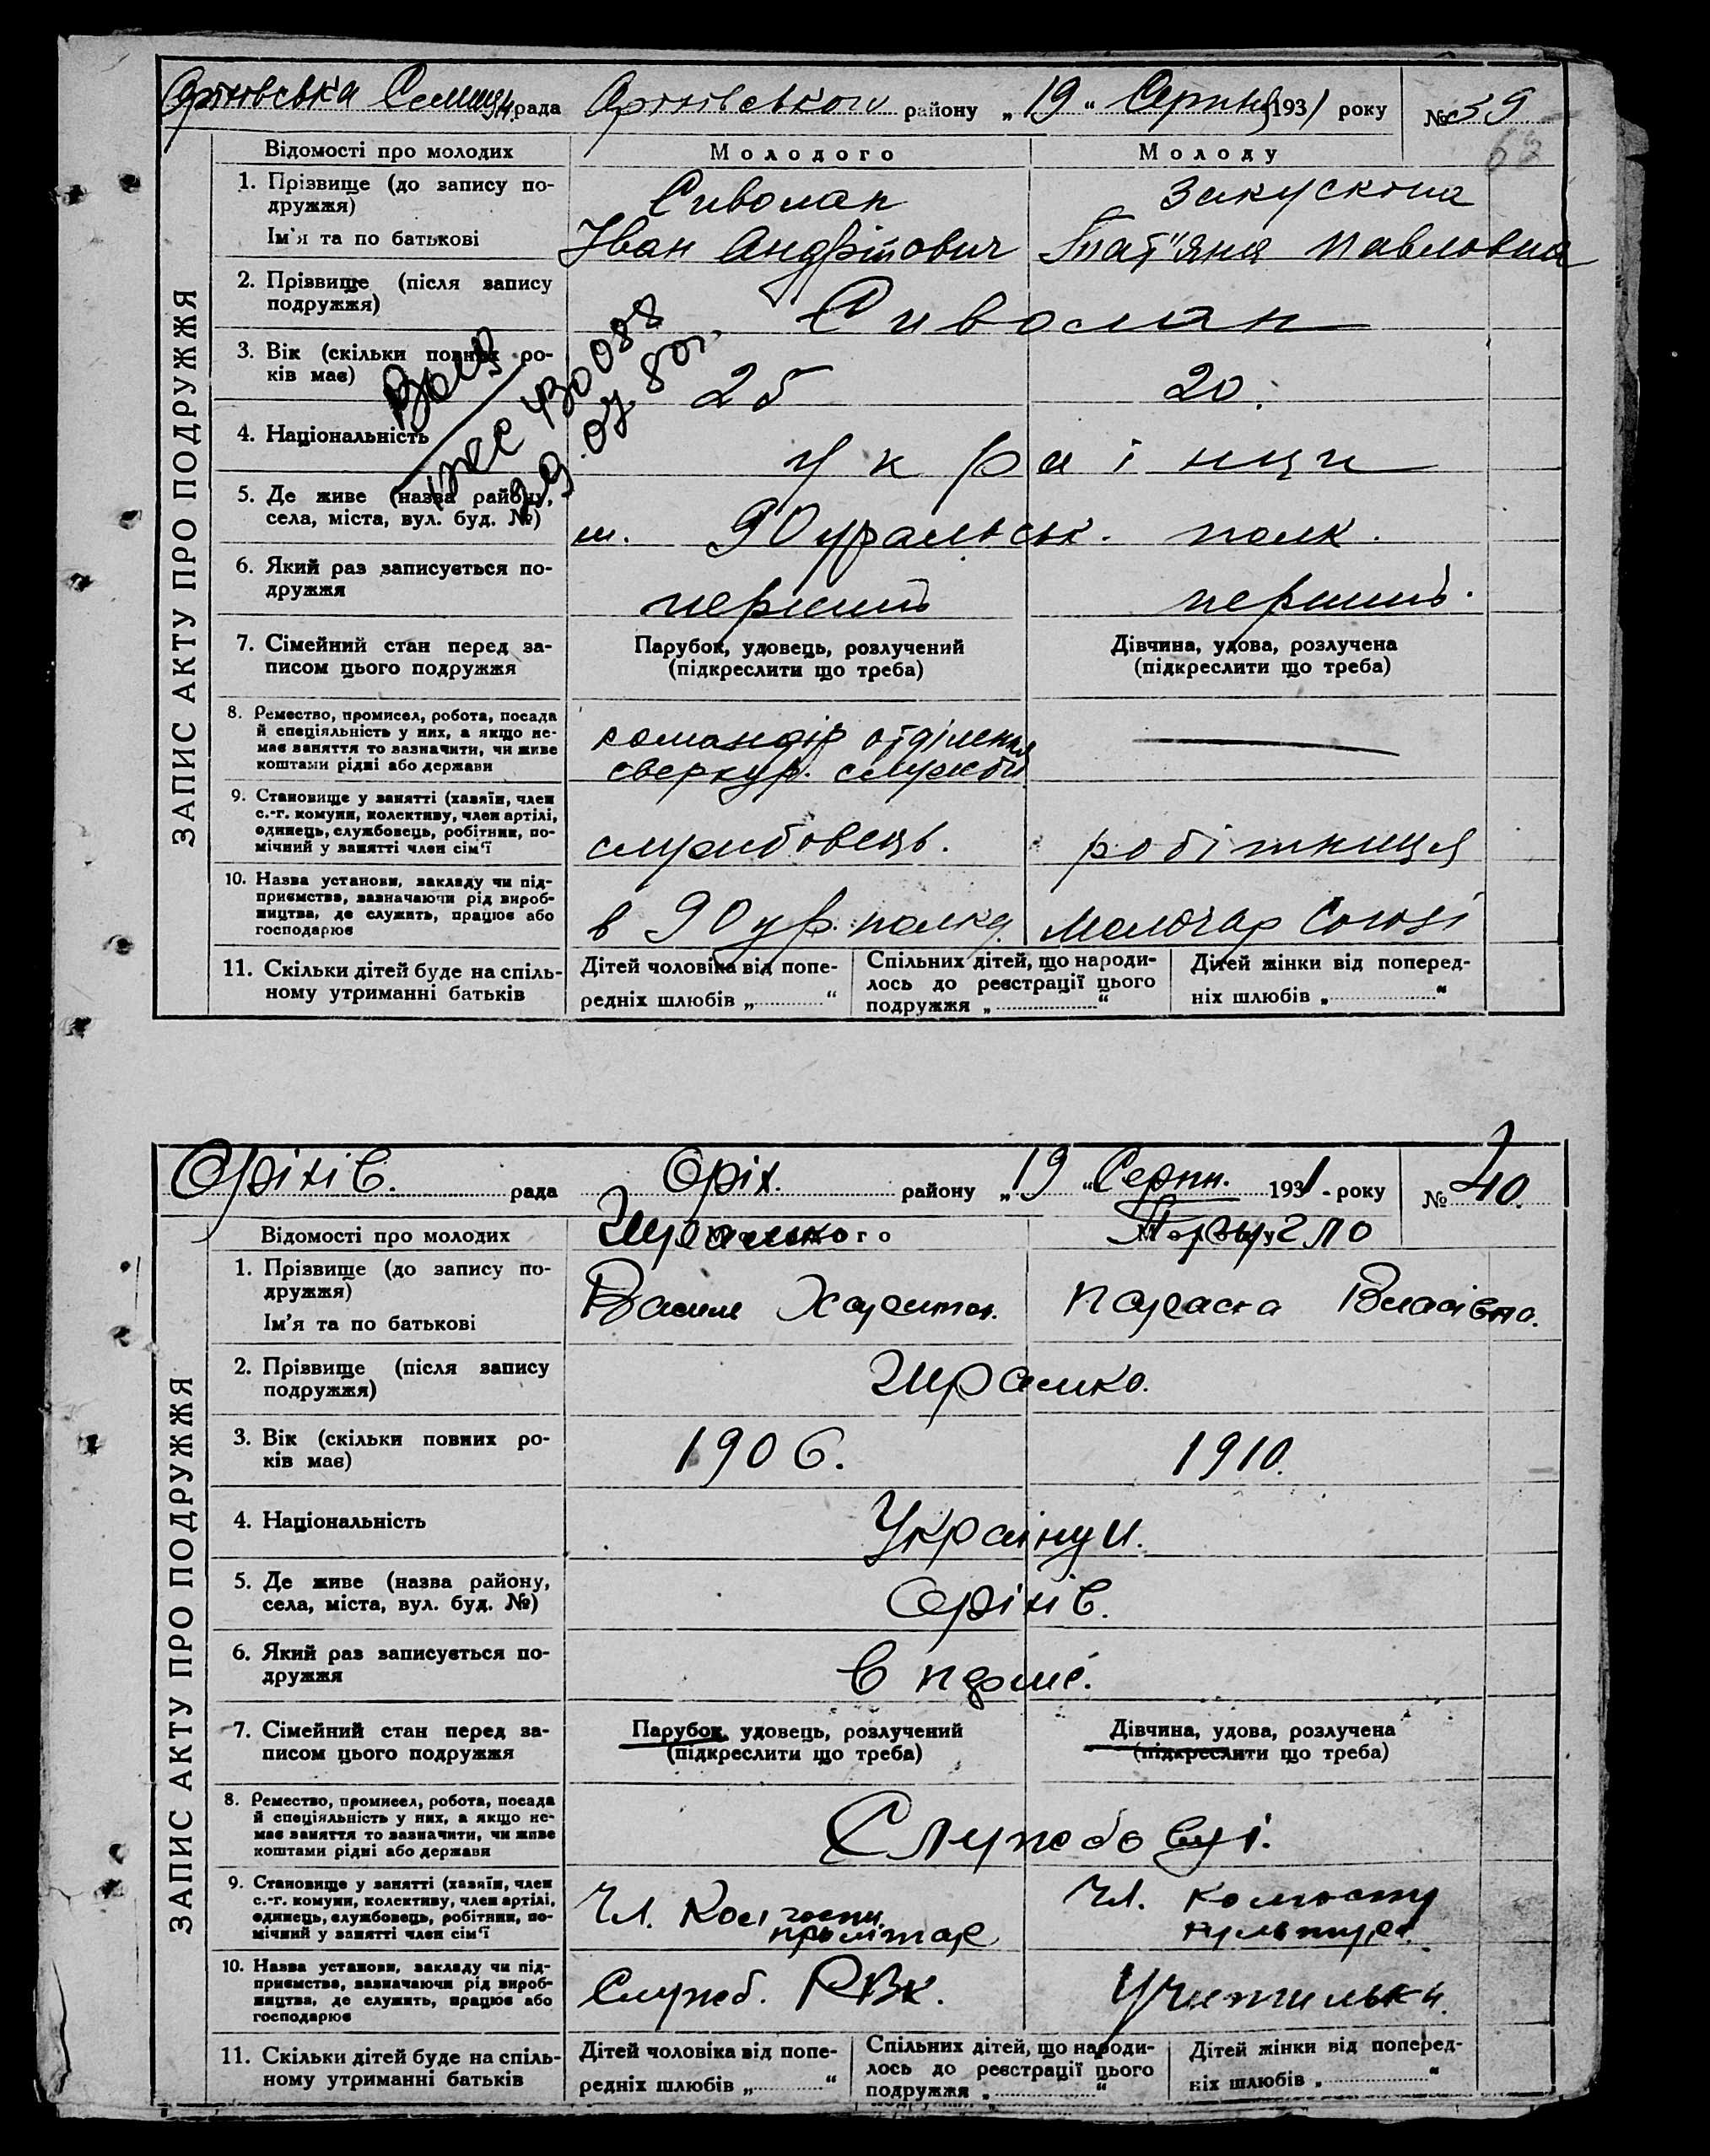 Оріхівська Селищн. рада Оріхівського району „19“ Серпня 1931 року №39
68
ЗАПИС АКТУ ПРО ПОДРУЖЖЯ
Відомості про молодих Молодого Молоду
1. Прізвище (до запису по-
дружжя) Сиволап
Ім'я та по батькові Іван Андрійович Тат"яна Павловна
2. Прізвище (після запису
подружжя) Сиволап
3. Вік (скільки повних ро-
ків має) 25 20.
4. Національність українци
5. Де живе (назва району,
села, міста, вул. буд. №) м. 90 уральськ. полк.
6. Який раз записується по-
дружжя перший перший.
7. Сімейний стан перед за-
писом цього подружжя
Парубок, удовець, розлучений
(підкреслити що треба)
Дівчина, удова, розлучена
(підкреслити що треба)
8. Ремество, промисел, робота, посада
й спеціяльність у них, а якщо не-
має заняття то зазначити, чи живе
коштами рідні або держави
командір отділення
сверхур. служби
9. Становище у занятті (хазяїн, член
с.-г. комуни, колективу, член артілі,
одинець, службовець, робітник, по-
мічний у занятті член сім'ї
службовець. робітниця
10. Назва установи, закладу чи під-
приємства, зазначаючи рід вироб-
ництва, де служить, працює або
господарює
в 90 ур. полку. Молочар Союзі
11. Скільки дітей буде на спіль-
ному утриманні батьків
Дітей чоловіка від попе-
редніх шлюбів „ “
Спільних дітей, що народи-
лось до реєстрації цього
подружжя „ “
Дітей жінки від поперед-
ніх шлюбів „ “
Оріхів. рада Оріх. району „19“ Серпн. 1931-року №40.
ЗАПИС АКТУ ПРО ПОДРУЖЖЯ
Відомості про молодих Молодого Молоду
1. Прізвище (до запису по-
дружжя)
Ім'я та по батькові Василь Харитон. Параска Власівна.
2. Прізвище (після запису
подружжя)
3. Вік (скільки повних ро-
ків має) 1906. 1910.
4. Національність Українци.
5. Де живе (назва району,
села, міста, вул. буд. №) Оріхів.
6. Який раз записується по-
дружжя в перше.
7. Сімейний стан перед за-
писом цього подружжя
Парубок, удовець, розлучений
(підкреслити що треба)
Дівчина, удова, розлучена
(підкреслити що треба)
8. Ремество, промисел, робота, посада
й спеціяльність у них, а якщо не-
має заняття то зазначити, чи живе
коштами рідні або держави
Службовці.
9. Становище у занятті (хазяїн, член
с.-г. комуни, колективу, член артілі,
одинець, службовець, робітник, по-
мічний у занятті член сім'ї
Чл. Колгоспу Чл. колгоспу
10. Назва установи, закладу чи під-
приємства, зазначаючи рід вироб-
ництва, де служить, працює або
господарює
Служб. РВК. Учителька.
11. Скільки дітей буде на спіль-
ному утриманні батьків
Дітей чоловіка від попе-
редніх шлюбів „ “
Спільних дітей, що народи-
лось до реєстрації цього
подружжя „ “
Дітей жінки від поперед-
ніх шлюбів „ “